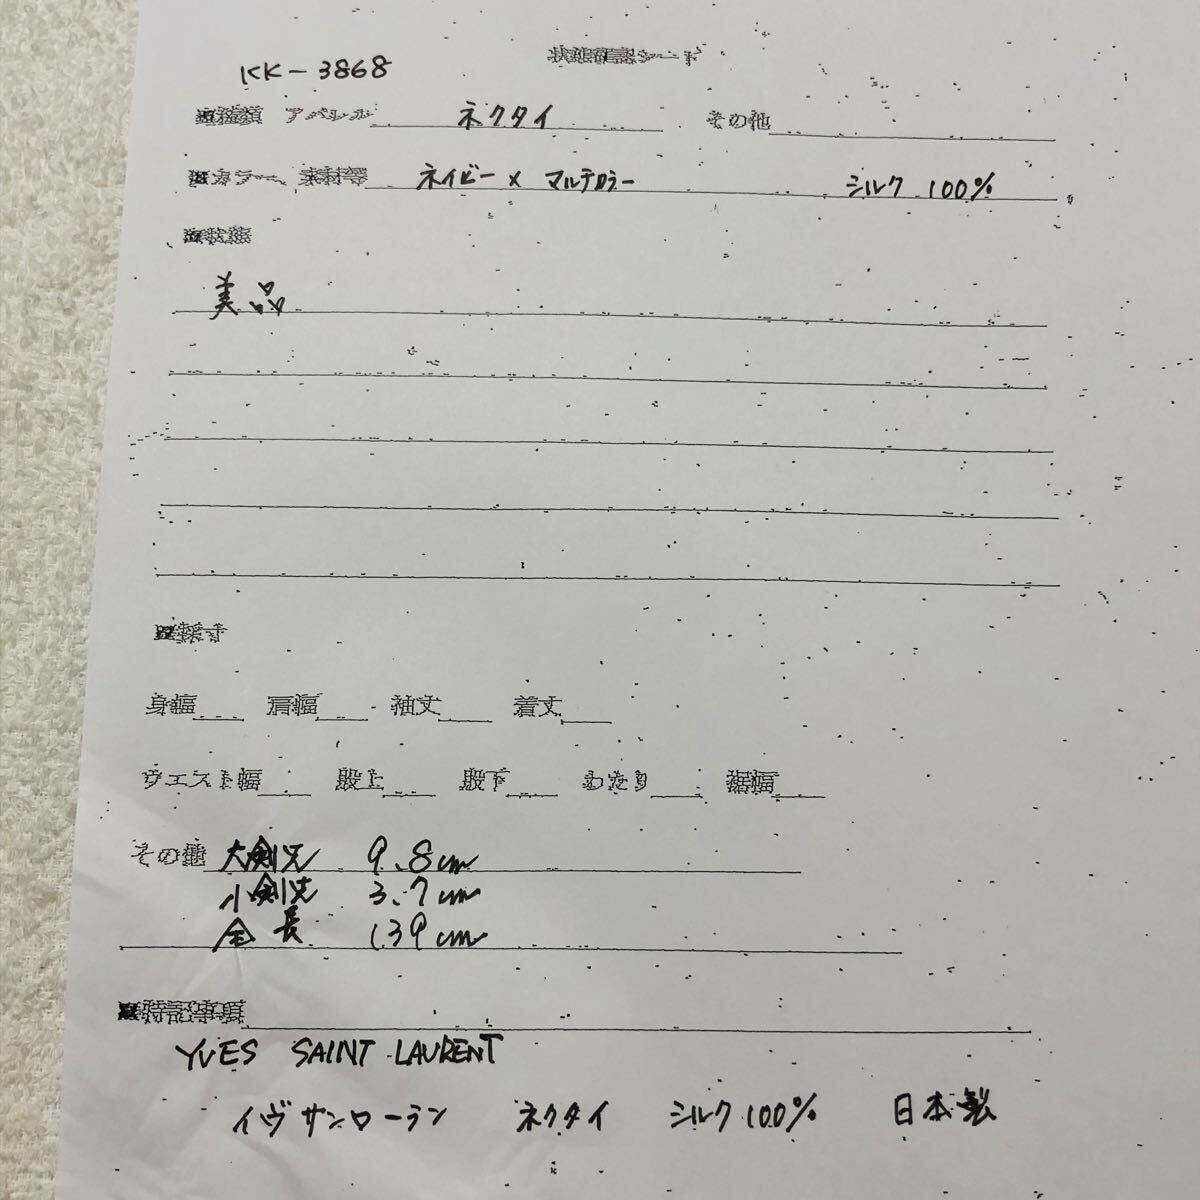 状態確認シート
KK-3868
■種類 アパレル ネクタイ その他
■カラー、素材等 ネイビー×マルチカラー シルク100%
■状態
美品
■採寸
身幅 肩幅 袖丈 着丈
ウエスト幅 股上 股下 わたり 裾幅
その他 大剣先 9.8cm
小剣先 3.7cm
全長 139cm
■特記事項
YVES SAINT LAURENT
イヴサンローラン ネクタイ シルク100% 日本製